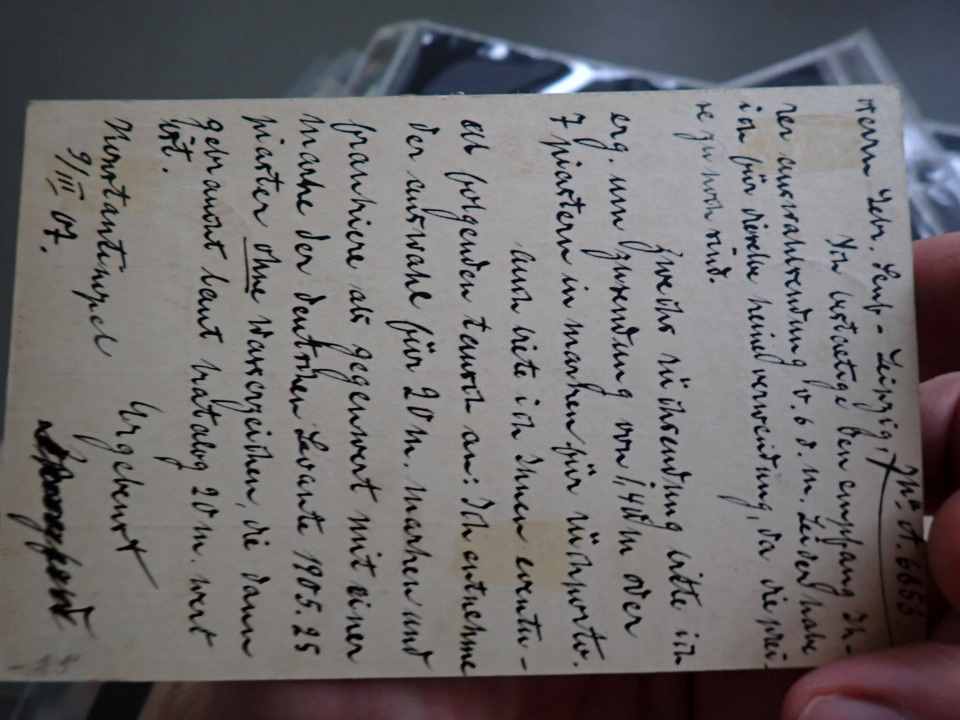 Herrn Gebr. Senf - Leipzig.
No A. 6653
Ich bestaetige den empfang Ih-
rer auswahlsendung v. 6 d. m. Leider habe
ich für dieselbe keine verwendung, da die prei-
se zu hoch sind.
Zwecks rücksendung bitte ich
erg. um zusendung von 1,40 m oder
7 piastern in marken für rückporto.
auch biete ich Ihnen eventu-
ell folgenden tausch an: Ich entnehme
der auswahl für 20 m. marken und
frankiere als gegenwert mit einer
marke der deutschen Levante 1905. 25
piaster ohne wasserzeichen, die dann
gebraucht laut katalog 20 m. wert
ist.
Konstantinopel
9/III 07.
Ergebenst